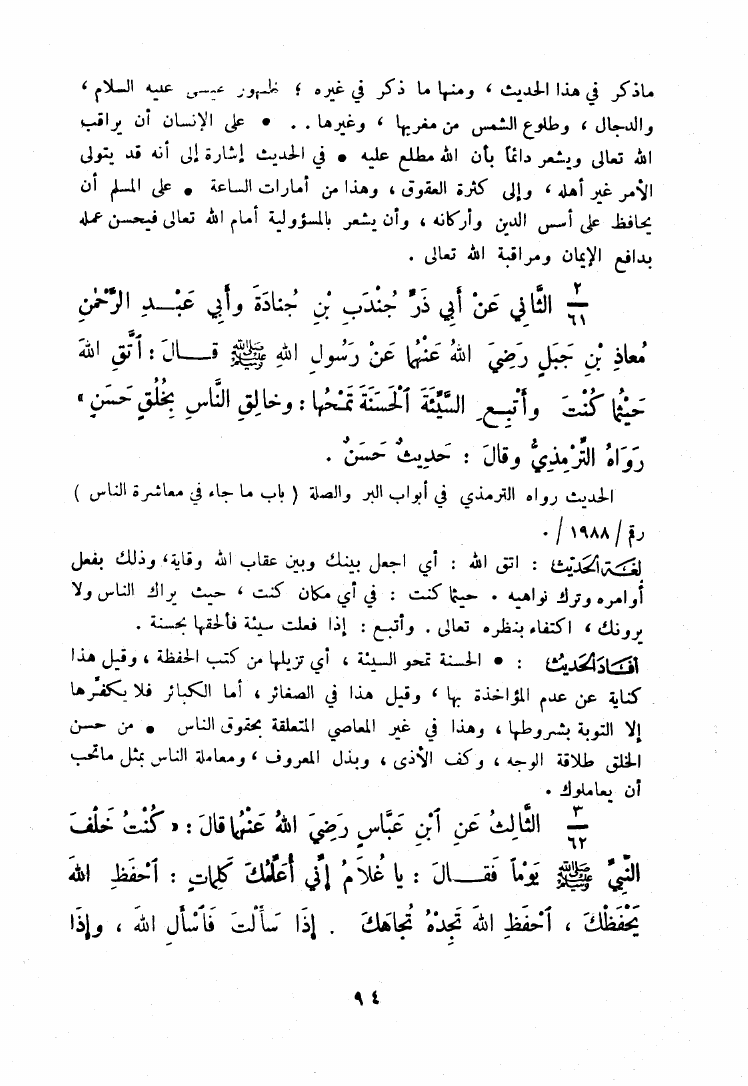 ماذكر في هذا الحديث ، ومنها ما ذكر في غيره ؛ ظهور عيسى عليه السلام ،
والدجال ، وطلوع الشمس من مغربها ، وغيرها . . • على الإنسان أن يراقب
الله تعالى ويشعر دائماً بأن الله مطلع عليه • في الحديث إشارة إلى أنه قد يتولى
الأمر غير أهله ، وإلى كثرة العقوق ، وهذا من أمارات الساعة • على المسلم أن
يحافظ على أسس الدين وأركانه ، وأن يشعر بالمسؤولية أمام الله تعالى فيحسن عمله
بدافع الإيمان ومراقبة الله تعالى .
٢/٦١ الثَّاني عَنْ أبي ذَرٍّ جُنْدَبِ بْنِ جُنادَةَ وأبي عَبْـدِ الرَّحْمٰنِ
مُعاذِ بْنِ جَبَلٍ رَضِيَ اللهُ عَنْهُما عَنْ رَسُولِ اللهِ ﷺ قـالَ : اَتَّقِ اللهَ
حَيْثُما كُنْتَ وأَتْبِـعِ السَّيِّئَةَ اَلْحَسَنَةَ تَمْحُها : وخالِقِ النَّاسَ بِخُلُقٍ حَسَنٍ »
رَوَاهُ التِّرْمِذِيُّ وقالَ : حَدِيثٌ حَسَنٌ .
الحديث رواه الترمذي في أبواب البر والصلة ( باب ما جاء في معاشرة الناس )
رقم / ١٩٨٨ / .
لغَة الحَديث : اتق الله : أي اجعل بينك وبين عقاب الله وقاية، وذلك بفعل
أوامره وترك نواهيه . حيثما كنت : في أي مكان كنت ، حيث يراك الناس ولا
يرونك ، اكتفاء بنظره تعالى . وأتبع : إذا فعلت سيئة فألحقها بحسنة .
أفَادَ الحَديث : • الحسنة تمحو السيئة ، أي تزيلها من كتب الحفظة ، وقيل هذا
كناية عن عدم المؤاخذة بها ، وقيل هذا في الصغائر ، أما الكبائر فلا يكفّرها
إلا التوبة بشروطها ، وهذا في غير المعاصي المتعلقة بحقوق الناس • من حسن
الخلق طلاقة الوجه ، وكف الأذى ، وبذل المعروف ، ومعاملة الناس بمثل ماتحب
أن يعاملوك .
٣/٦٢ الثَّالِثُ عَنِ اَبْنِ عَبَّاسٍ رَضِيَ اللهُ عَنْهُما قالَ : « كُنْتُ خَلْفَ
النَّبِيِّ ﷺ يَوْماً فَقَـالَ : يا غُلامُ إِنِّي أُعَلِّمُكَ كَلِماتٍ : اَحْفَظِ اللهَ
يَحْفَظْكَ ، اَحْفَظِ اللهَ تَجِدْهُ تُجاهَكَ . إذَا سَأَلْتَ فَاَسْأَلِ اللهَ ، وإذَا
٩٤